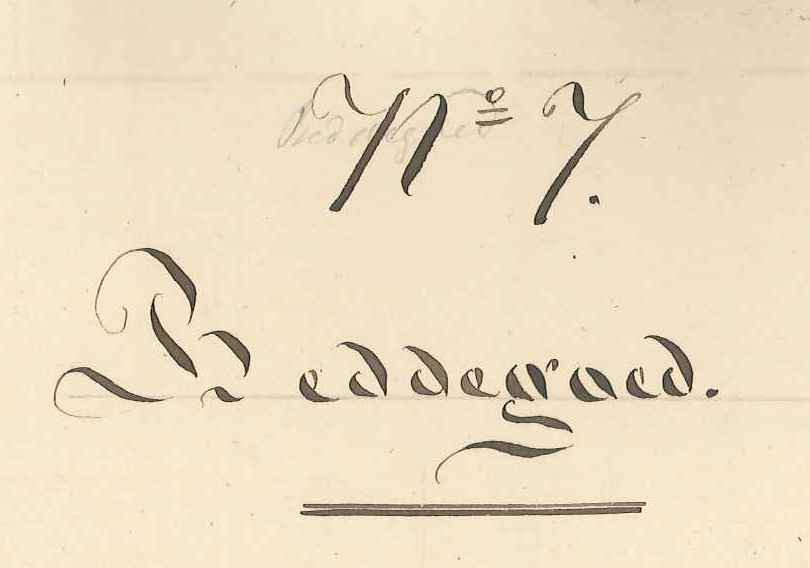 Beddegoed
Nº 7.
Beddegoed.